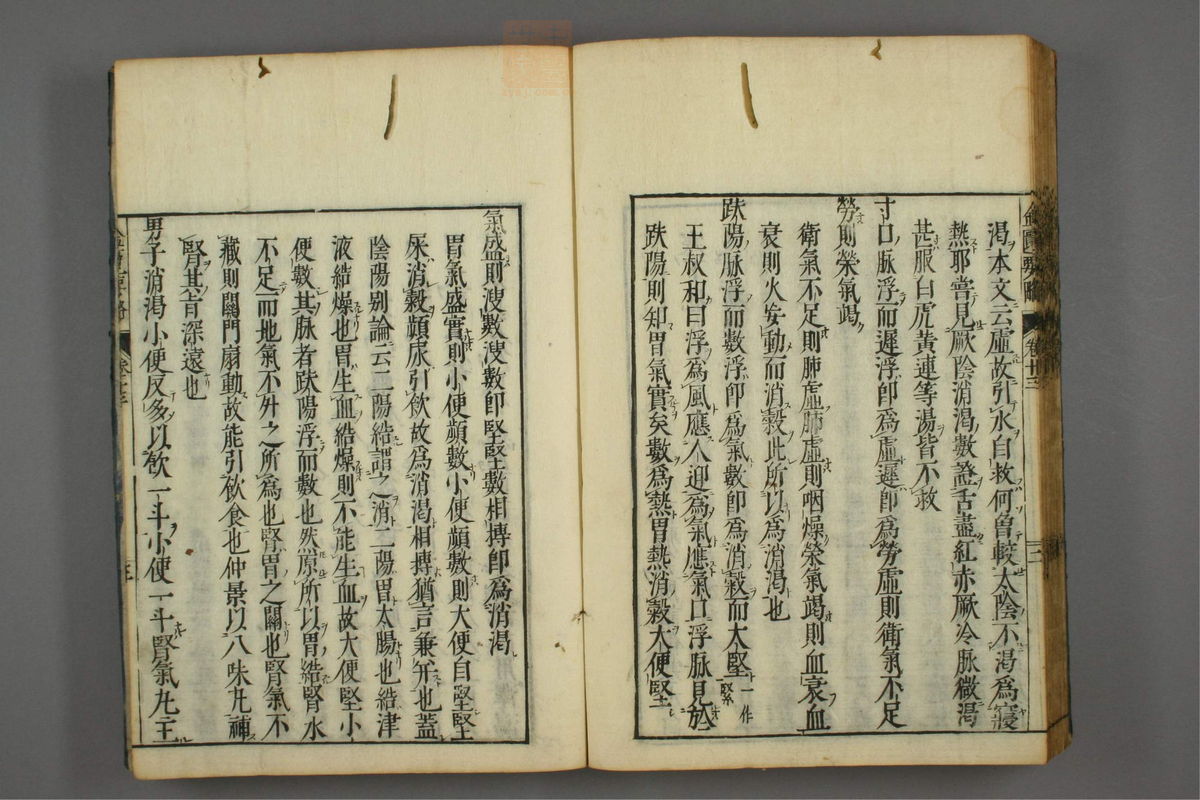 渴本文云虛故引水自救何曾較太陰不渴爲寢
熱耶嘗見厥陰消渴數證舌盡紅赤厥冷脉微渴
甚服白虎黃連等湯皆不救
寸口脉浮而遲浮卽爲虛遲卽爲勞虛則衛氣不足
勞則榮氣竭
衛氣不足則肺虛肺虛則咽燥榮氣竭則血衰血
衰則火妄動而消穀此所以爲消渴也
趺陽脉浮而數浮卽爲氣數卽爲消穀而大堅一作緊
王叔和曰浮爲風應人迎爲氣應氣口浮脉見於
趺陽則知胃氣實矣數爲熱胃熱消穀大便堅
金匱要略 卷十三 二
氣盛則溲數溲數卽堅堅數相搏卽爲消渴
胃氣盛實則小便頻數小便頻數則大便自堅堅
尿消穀頻尿引飲故爲消渴相搏猶言兼幷也蓋
陰陽別論云二陽結謂之消二陽胃太腸也結津
液結燥也胃生血結燥則不能生血故大便堅小
便數其脉者趺陽浮而數也然原所以胃結腎水
不足而地氣不升之所爲也腎胃之關也腎氣不
藏則關門扇動故能引飮食也仲景以八味丸補
腎其旨深遠也
男子消渴小便反多以飮一斗小便一斗腎氣丸主
金匱要略 卷十三 三